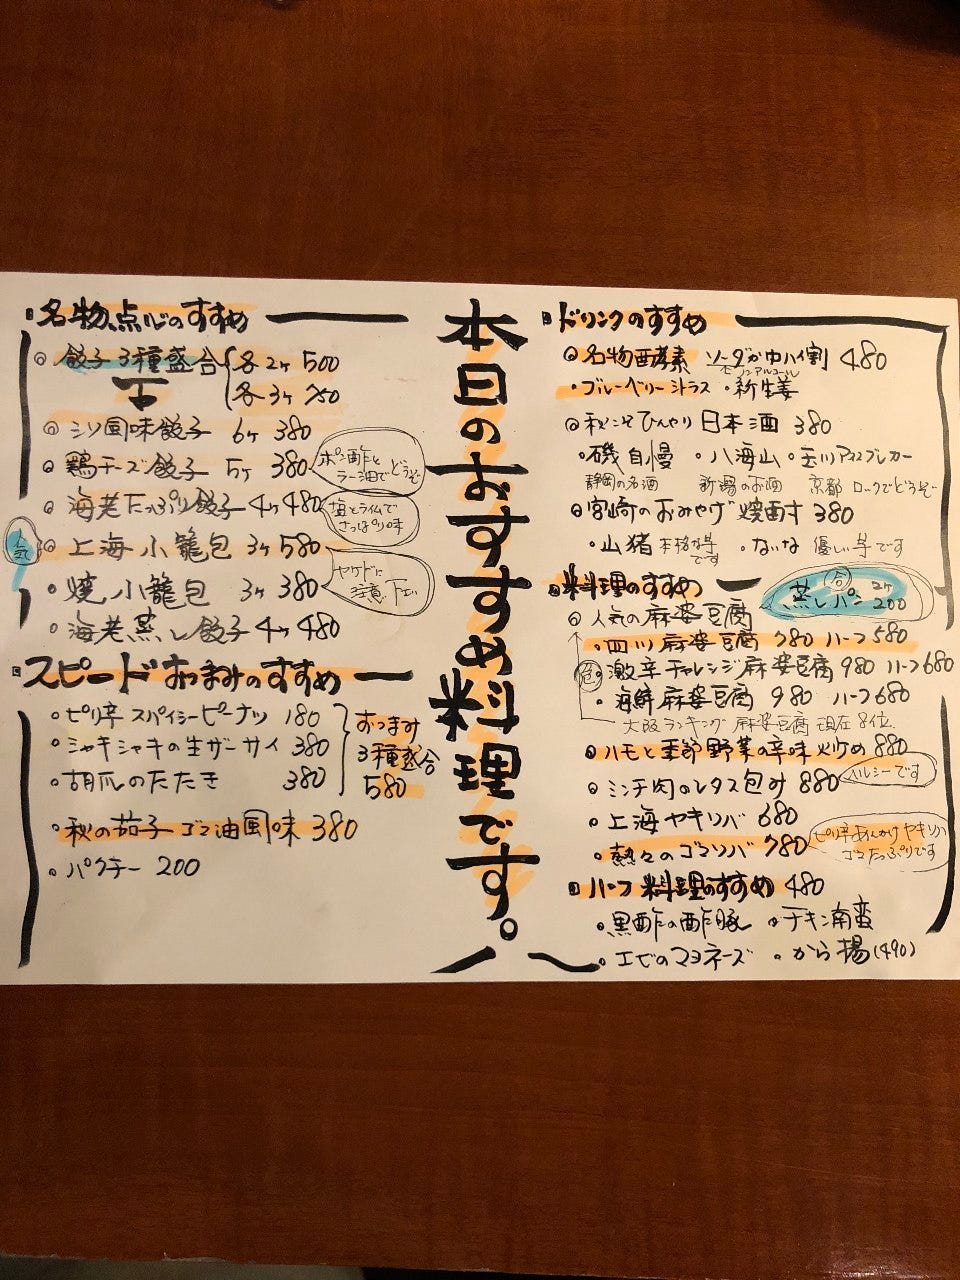 本日のおすすめ料理です。
名物点心のすすめ
餃子3種盛合 各2ヶ 500
各3ヶ 750
シソ風味餃子 6ヶ 380
鶏チーズ餃子 5ヶ 380
ポン酢と
ラー油でどうぞ
海老たっぷり餃子 4ヶ 480
塩とライムで
さっぱり味
人気
上海小籠包 3ヶ 580
焼小籠包 3ヶ 380
ヤケドに
注意下さい
海老蒸し餃子 4ヶ 480
スピードおつまみのすすめ
ピリ辛スパイシーピーナツ 180
シャキシャキの生ザーサイ 380
胡瓜のたたき 380
おつまみ
3種盛合
580
秋の茄子ゴマ油風味 380
パクチー 200
ドリンクのすすめ
名物酵素 ソーダか中ハイ割 480
ノンアルコール
・ブルーベリーシトラス ・新生姜
秋こそひんやり日本酒 380
・磯自慢 ・八海山 ・玉川アイスブレーカー
静岡の名酒 新潟のお酒 京都 ロックでどうぞ
宮崎のおみやげ 焼酎 380
・山猪 本格芋です ・ないな 優しい芋です
料理のすすめ
蒸しパン 2ヶ 200
人気の麻婆豆腐
・四川麻婆豆腐 780 ハーフ 580
・激辛チャレンジ麻婆豆腐 980 ハーフ 680
・海鮮麻婆豆腐 980 ハーフ 680
大阪ランキング 麻婆豆腐 現在8位
ハモと季節野菜の辛味炒め 880
ヘルシーです
ミンチ肉のレタス包み 880
上海ヤキソバ 680
熱々のゴマソバ 780
ピリ辛あんかけヤキソバ
ゴマたっぷりです
ハーフ料理のすすめ 480
・黒酢の酢豚 ・チキン南蛮
・エビのマヨネーズ ・から揚(490)